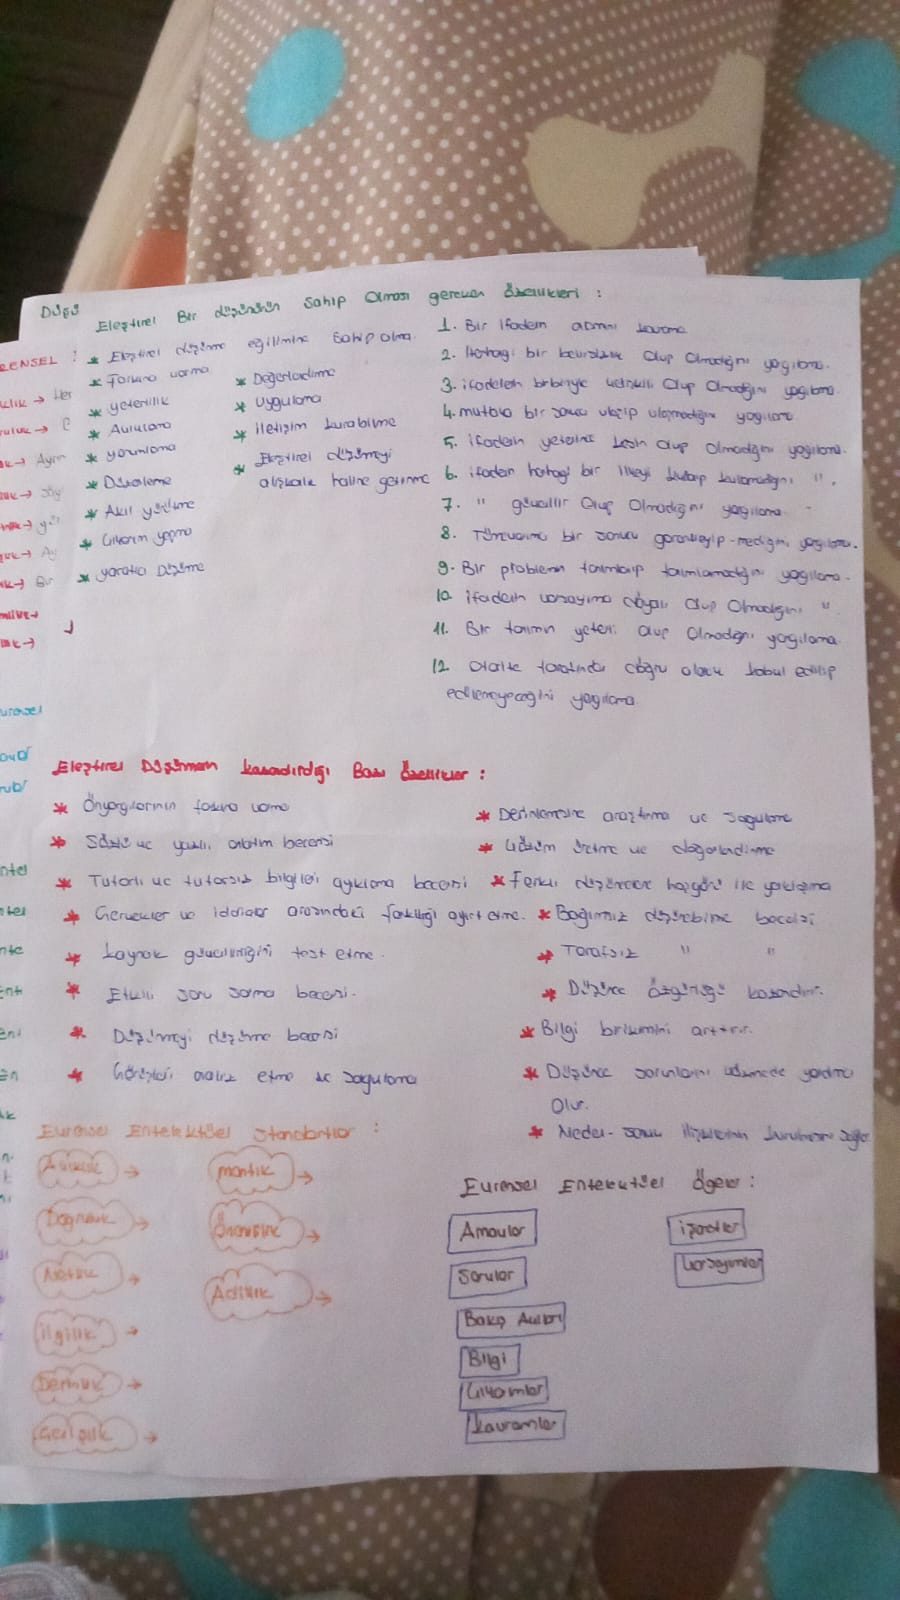 Düşü
Eleştirel Bir düşünürün Sahip Olması gereken özellikleri :
* Eleştirel düşünme eğilimine sahip olma.
* Farkına varma
* yeterlilik
* Açıklama
* yorumlama
* Düzenleme
* Akıl yürütme
* Çıkarım yapma
* yaratıcı Düşünme
* Değerlendirme
* Uygulama
* iletişim kurabilme
* Eleştirel düşünmeyi
alışkanlık haline getirme
1. Bir ifadenin anlamını kavrama
2. Herhangi bir belirsizlik Olup Olmadığını yargılama.
3. ifadelerin birbiriyle çelişkili Olup Olmadığını yargılama
4. mutlaka bir sonuca ulaşıp ulaşmadığını yargılama
5. ifadenin yeterince kesin olup Olmadığını yargılama.
6. ifadenin herhangi bir ilkeyi kullanıp kullanmadığını " .
7. " güvenilir Olup Olmadığını yargılama.
8. Tümevarımın bir sonucu garantileyip-mediğini yargılama.
9. Bir problemin tanımlanıp tanımlamadığını yargılama.
10. ifadenin varsayıma dayalı Olup Olmadığını " .
11. Bir tanımın yeterli olup Olmadığını yargılama.
12. Otorite tarafından doğru olarak kabul edilip
edilemeyeceğini yargılama
Eleştirel Düşünmenin kazandırdığı Bazı özellikler :
* Önyargılarının farkına varma
* Sözlü ve yazılı anlatım becerisi
* Tutarlı ve tutarsız bilgileri ayıklama becerisi
* Gerçekler ve iddialar arasındaki farklılığı ayırt etme.
* kaynak güvenilirliğini test etme.
* Etkili soru sorma becerisi.
* Düşünmeyi düşünme becerisi
* Görüşleri analiz etme ve sorgulama
* Derinlemesine araştırma ve sorgulama
* Çözüm üretme ve değerlendirme
* Farklı düşüncelere hoşgörü ile yaklaşma
* Bağımsız düşünebilme becerisi
* Tarafsız " "
* Düşünce özgürlüğü kazandırır.
* Bilgi birikimini arttırır.
* Düşünce sorunlarını çözmede yardımcı
Olur.
* Neden-sonuç ilişkilerinin kurulmasını sağlar
Evrensel Entelektüel Standartlar :
Açıklık →
Doğruluk →
Netlik →
ilgililik →
Derinlik →
Genişlik →
mantık →
Önemlilik →
Adillik →
Evrensel Entelektüel Ögeler :
Amaçlar
Sorular
Bakış Açıları
Bilgi
Çıkarımlar
kavramlar
işaretler
Varsayımlar